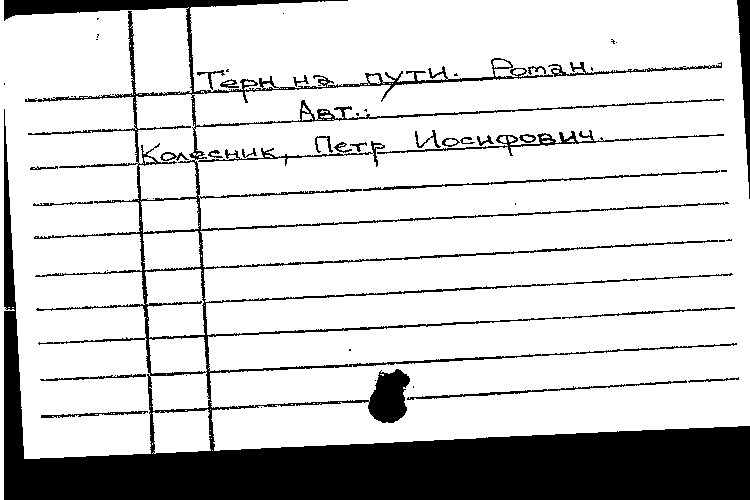 Терн на пути. Роман.
Авт.:
Колесник, Петр Иосифович.